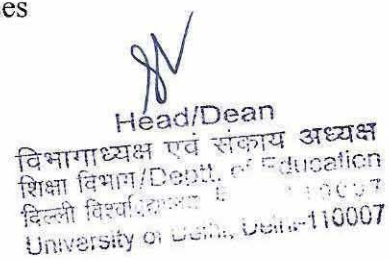 es
Head/Dean
विभागाध्यक्ष एवं संकाय अध्यक्ष
शिक्षा विभाग/Deptt. of Education
दिल्ली
University of Delhi, Delhi-110007